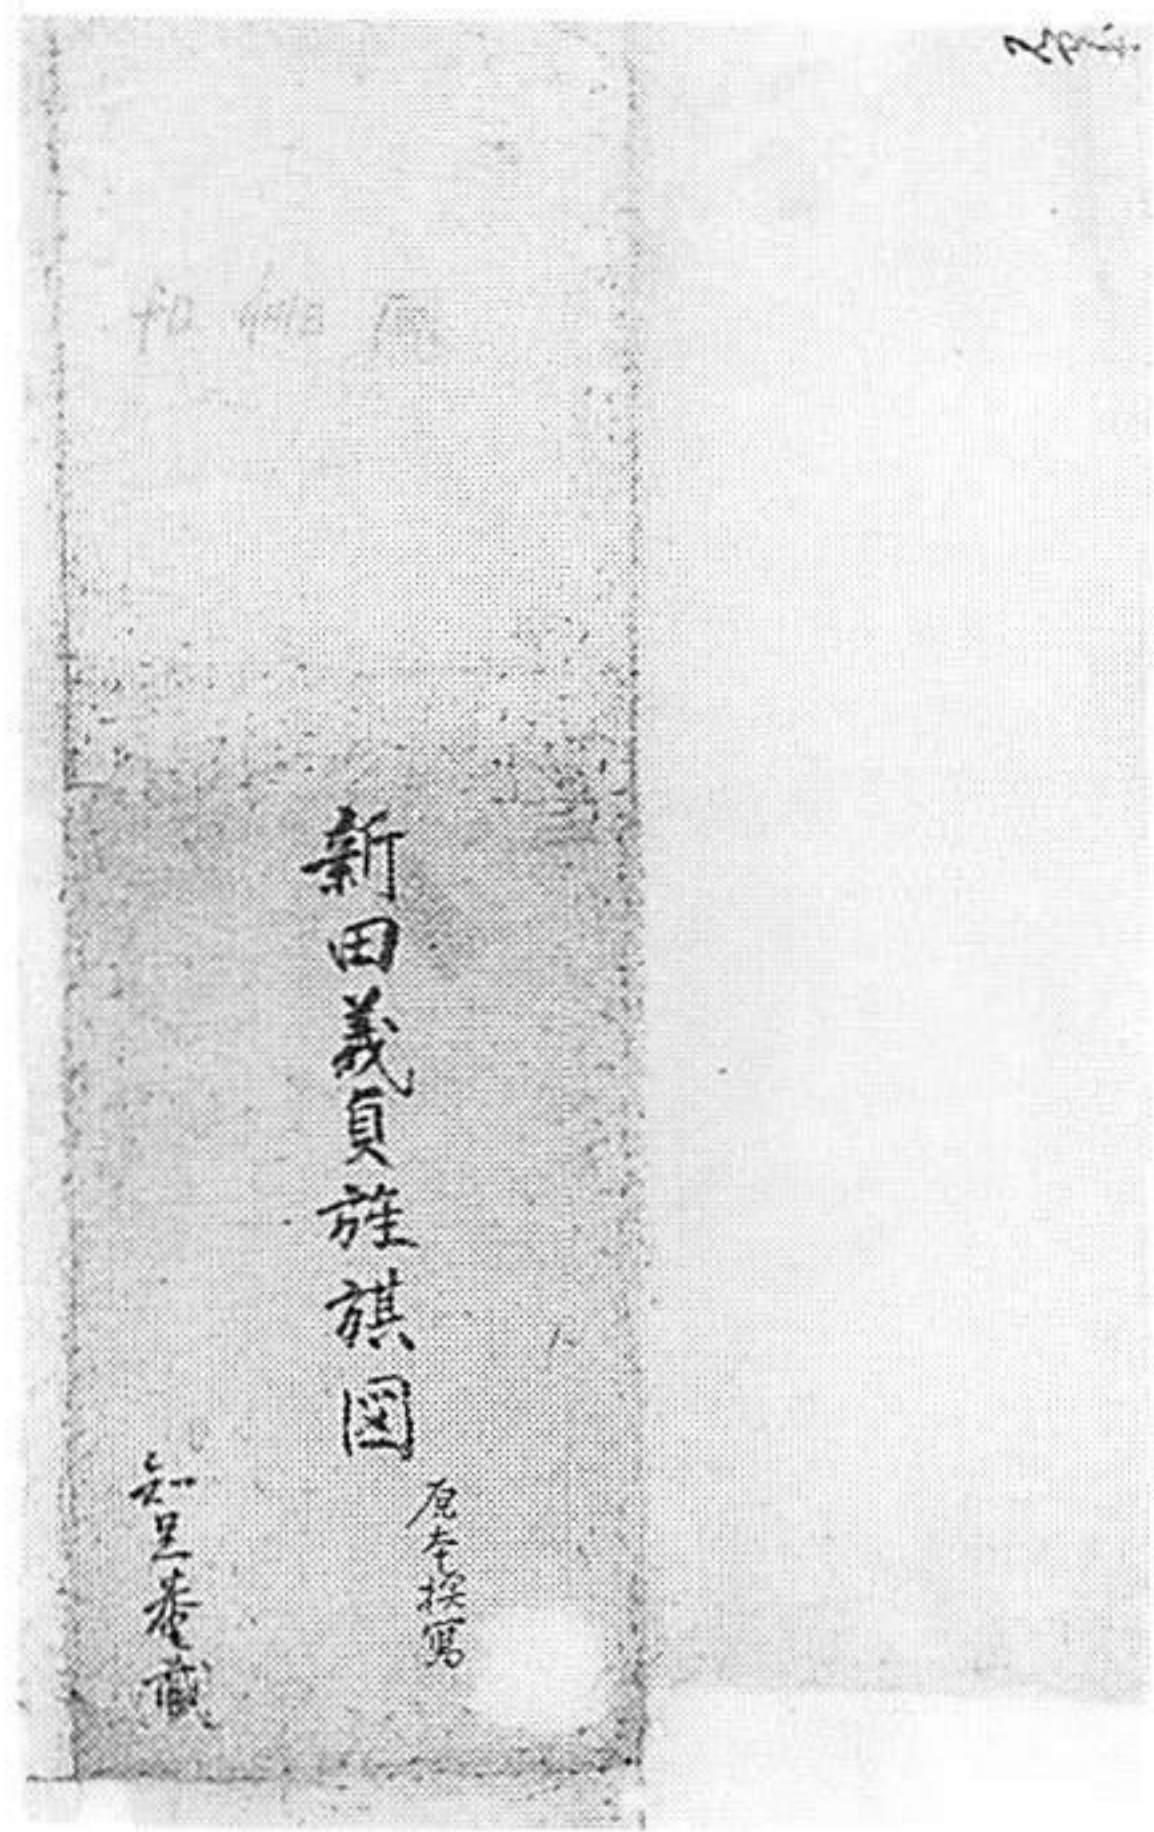 新田義貞旌旗図
原本摸写
知足菴蔵